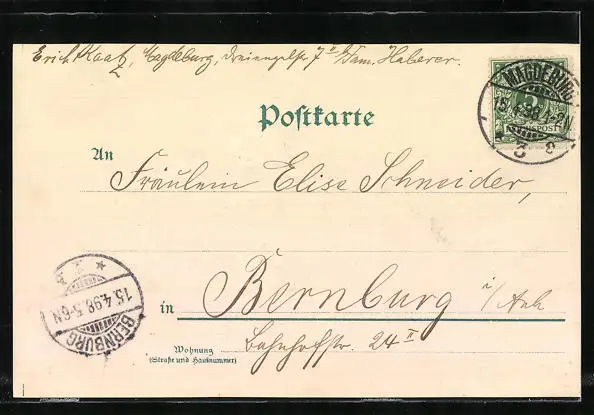 Erich Kaatz, Magdeburg, Dreiengelstr. 7 II b/ Fam. Haberer.
MAGDEBURG
15.4.98.1-2N
3 e
5
REICHSPOST
Postkarte
An
Fräulein Elise Schneider,
in Bernburg i/Anh
Wohnung Bahnhofstr. 24 II
(Straße und Hausnummer)
BERNBURG
15.4.98.5-6N